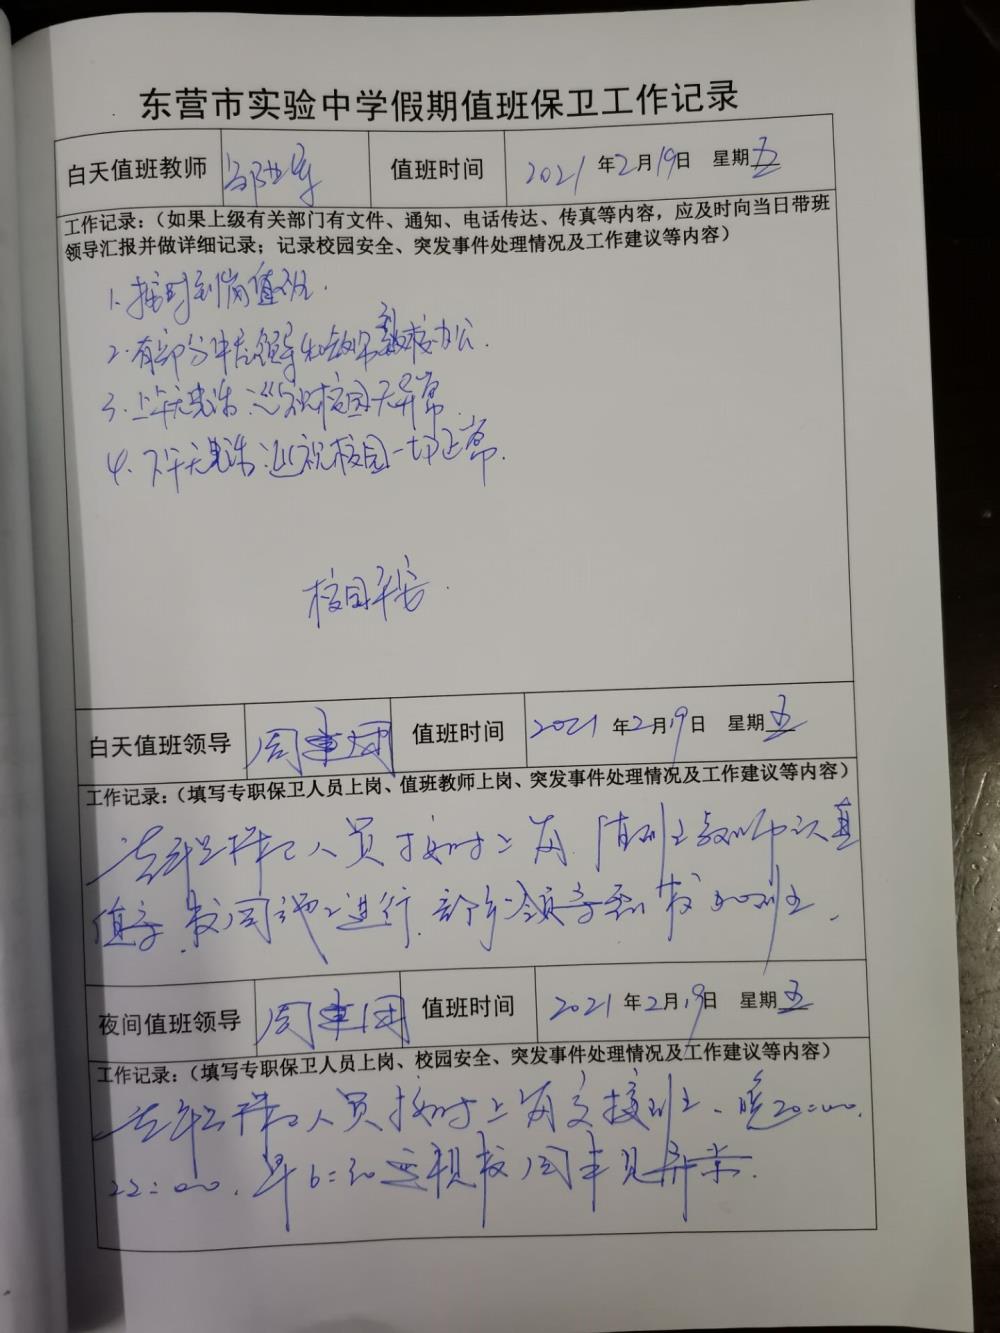 东营市实验中学假期值班保卫工作记录
白天值班教师 值班时间 2021年2月19日 星期五
工作记录：（如果上级有关部门有文件、通知、电话传达、传真等内容，应及时向当日带班
领导汇报并做详细记录；记录校园安全、突发事件处理情况及工作建议等内容）
1. 按时到岗值班.
2. 有部分中层领导和教师到校办公.
3. 上午 巡视校园无异常.
4. 下午 巡视校园一切正常.
校园平安.
白天值班领导 周 值班时间 2021年2月19日 星期五
工作记录：（填写专职保卫人员上岗、值班教师上岗、突发事件处理情况及工作建议等内容）
人员按时上岗 值班教师认真
值 校园 进行 部分领导到校加班.
夜间值班领导 周 值班时间 2021年2月19日 星期五
工作记录：（填写专职保卫人员上岗、校园安全、突发事件处理情况及工作建议等内容）
人员按时上岗交接班. 晚20:00.
22:00. 早6:30巡视校园未见异常.